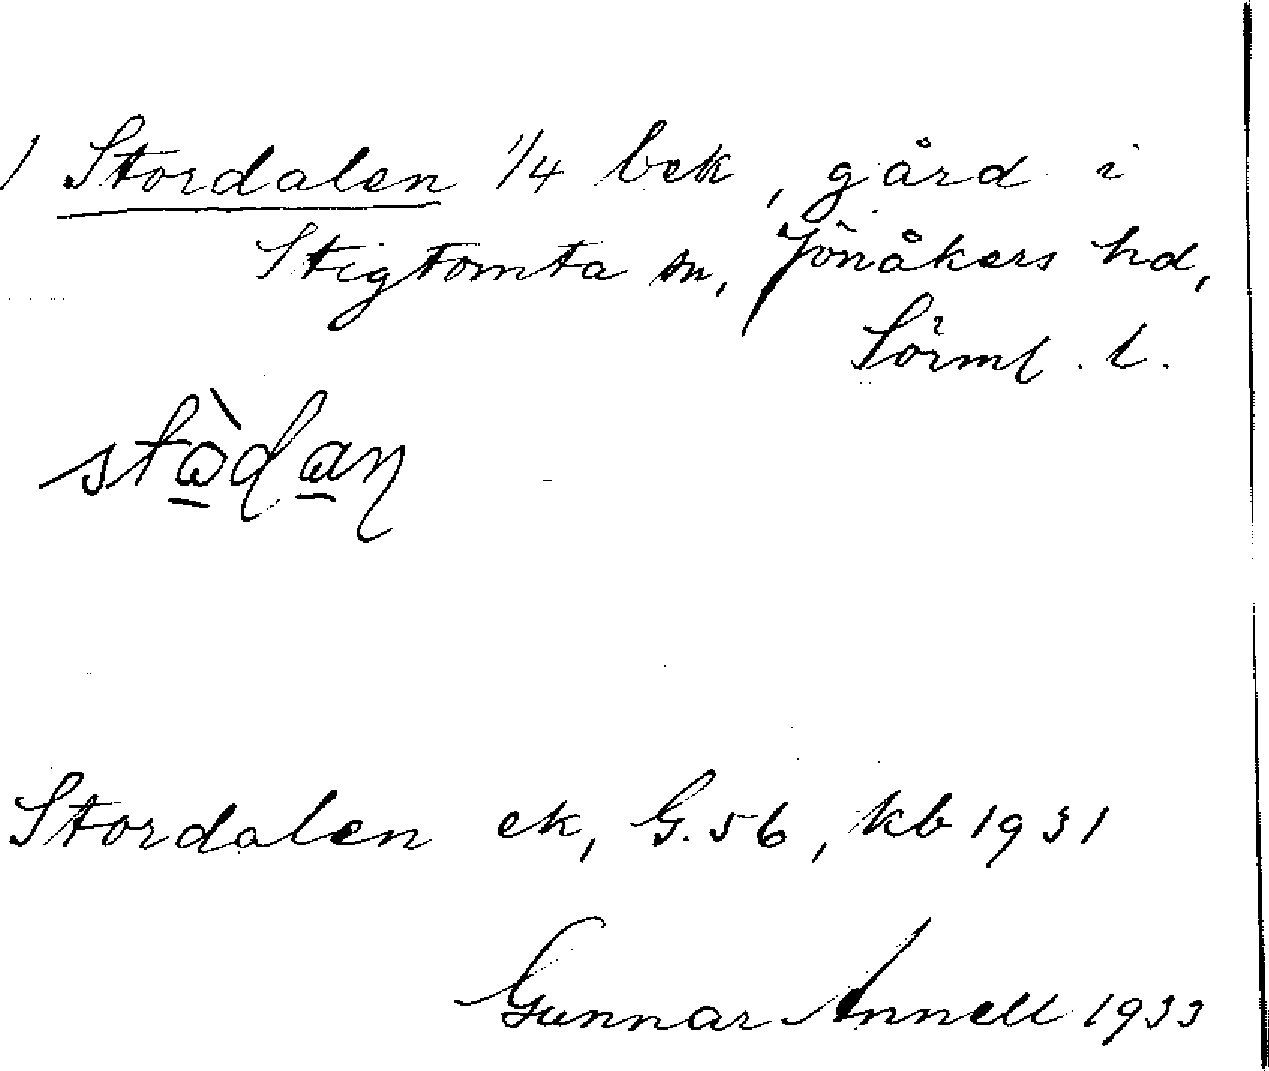 1 Stordalen 1/4 bek, gård i
Stigtomta sn, Jönåkers hd,
Sörml. l.
Stordalen ek, G. 56, kb 1931
Gunnar Annell 1933